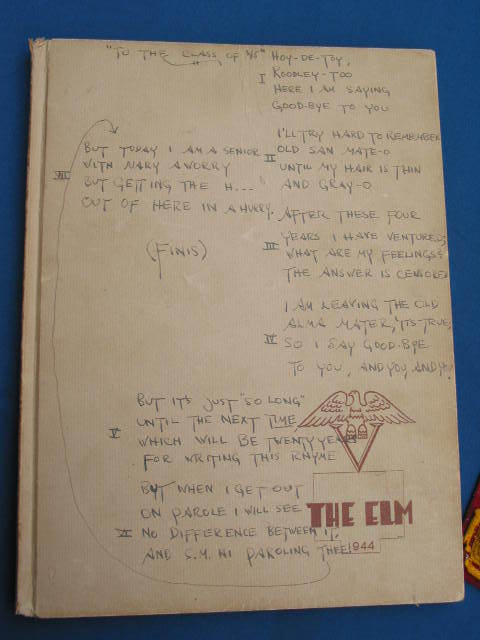 "TO THE CLASS OF 45"
I
HOY-DE-TOY,
ROODLEY-TOO
HERE I AM SAYING
GOOD-BYE TO YOU
II
I'LL TRY HARD TO REMEMBER
OLD SAN MATE-O
UNTIL MY HAIR IS THIN
AND GRAY-O.
III
AFTER THESE FOUR
YEARS I HAVE VENTURED,
WHAT ARE MY FEELINGS?
THE ANSWER IS CENSORED
IV
I AM LEAVING THE OLD
ALMA MATER, 'TIS-TRUE,
SO I SAY GOOD-BYE
TO YOU, AND YOU, AND YOU!
V
BUT IT'S JUST "SO LONG"
UNTIL THE NEXT TIME
WHICH WILL BE TWENTY YEARS
FOR WRITING THIS RHYME
VI
BUT WHEN I GET OUT
ON PAROLE I WILL SEE
NO DIFFERENCE BETWEEN IT,
AND S.M. HI PAROLING THEE!
VII
BUT TODAY I AM A SENIOR
WITH NARY A WORRY
BUT GETTING THE H...
OUT OF HERE IN A HURRY.
(FINIS)
V
THE ELM
1944